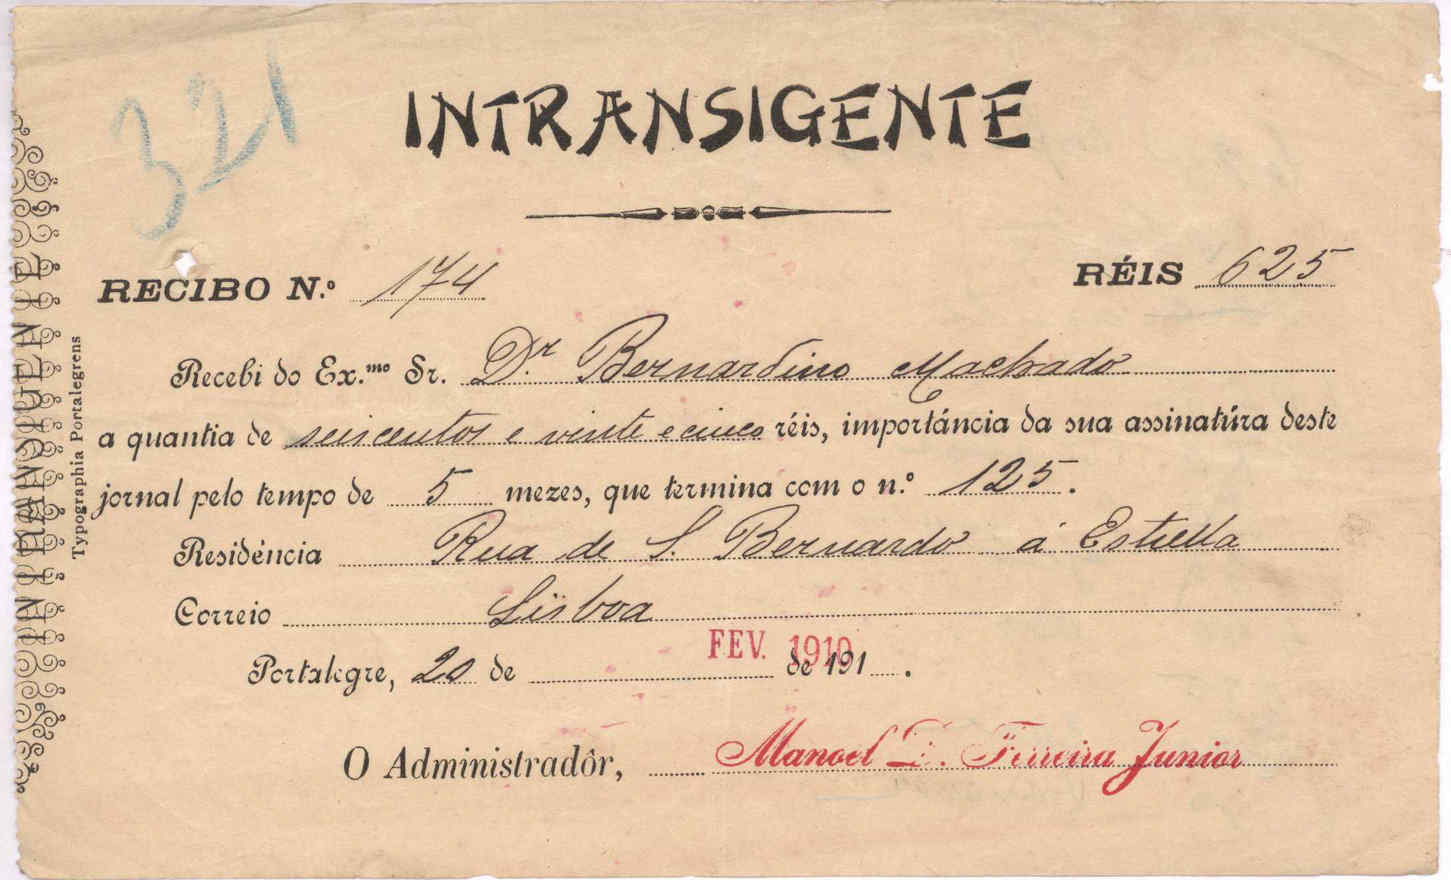 321
INTRANSIGENTE
RECIBO N.º 174 RÉIS 625
Recebi do Ex.mo Sr. D.r Bernardino Machado
a quantia de seiscentos e vinte e cinco réis, importáncia da sua assinatúra deste
jornal pelo tempo de 5 mezes, que termina com o n.º 125.
Residéncia Rua de S. Bernardo á Estrella
Correio Lisboa
Portalegre, 20 de FEV. 1910 de 191 .
O Administradôr, Manoel F. Ferreira Junior
INTRANSIGENTE
Typographia Portalegrens